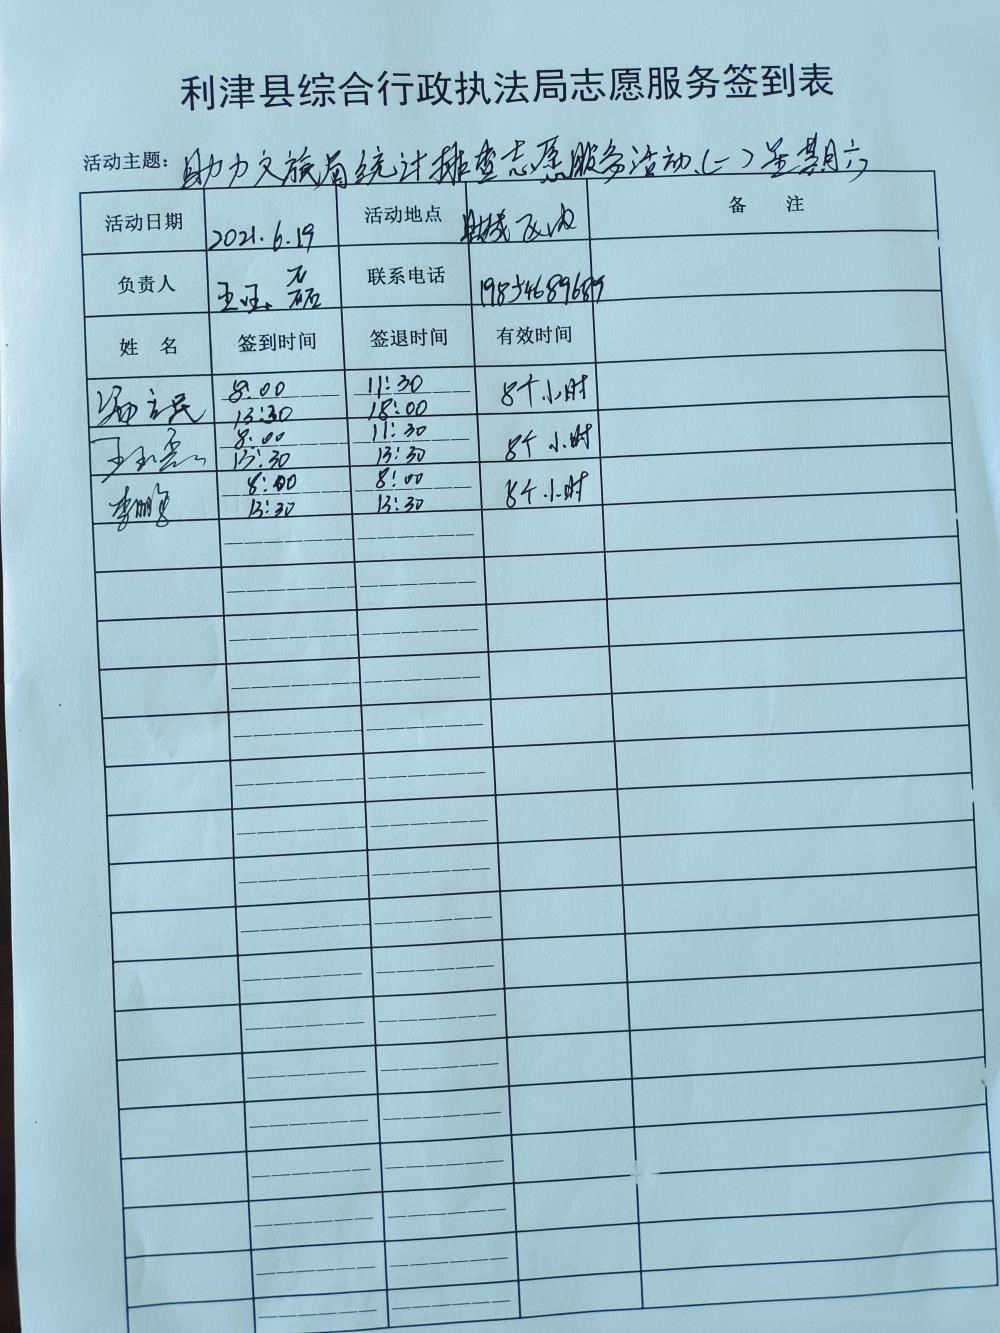 利津县综合行政执法局志愿服务签到表
活动主题：助力文旅局统计排查志愿服务活动（一）星期六
活动日期 2021.6.19 活动地点 备 注
负责人 联系电话
姓 名 签到时间 签退时间 有效时间
8:00 11:30 8个小时
13:30 18:00
8:00 11:30 8个小时
13:30 13:30
李鹏 8:00 8:00 8个小时
13:30 13:30